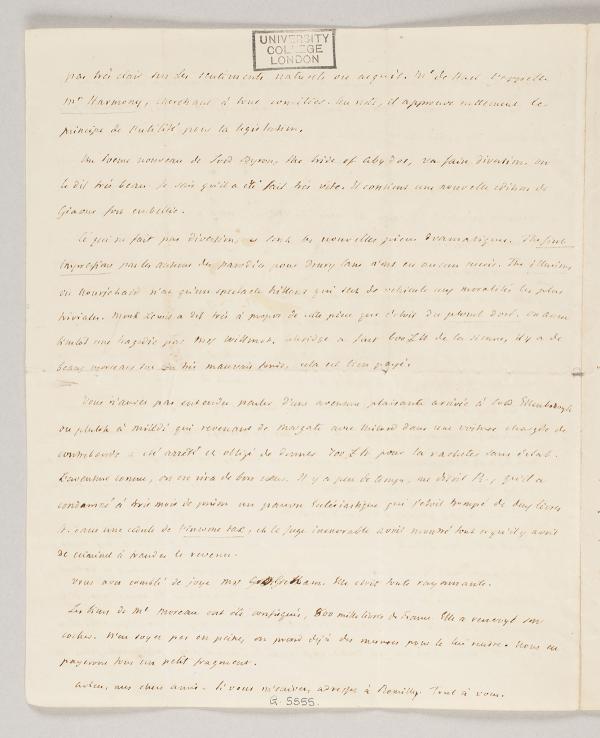 UNIVERSITY
COLLEGE
LONDON
pas très clair sur les sentiments naturels ou acquis. Mde de Stael l'appelle
Mr Harmony, cherchant à tout concilier. Au reste, il approuve nettement le
principe de l'utilité pour la législation.
Un poème nouveau de Lord Byron, the bride of Abydos, va faire diversion. on
le dit très beau. Je sais qu'il a été fait très vite. Il contient une nouvelle édition de
Giaour fort embellie.
Ce qui ne fait pas diversion, ce sont les nouvelles pièces dramatiques. The
par les auteurs des parodies pour Drury lane n'ont eu aucun succès. The illusion
ou Nourjahad n'a qu'un spectacle brillant qui sert de véhicule aux moralités les plus
triviales. Monk Lewis a dit très à propos de cette pièce que c'étoit du plomb doré. On aura
bientôt une tragédie par Mrs Wilmot, abridge a fait 600 £ de la sienne, il y a de
beaux morceaux sur un très mauvais fonds, cela est bien payé.
Vous n'aurez pas entendu parler d'une aventure plaisante arrivée à Lord Ellenborough
ou plutôt à miladi qui revenant de Margate avec milord dans une voiture chargée de
contrebande a été arrêté et obligé de donner 700 £ pour la racheter sans éclat.
L'aventure connue, on en rira de bon cœur. Il y a peu de temps, me disoit R., qu'il a
condamné à trois mois de prison un pauvre Ecclésiastique qui s'étoit trompé de deux livres
st. dans une cédule de l'income tax, et le juge inexorable avoit montré tout ce qu'il y avoit
de criminel à frauder le revenu.
Vous avez comblé de joye Mrs Gr. Elle étoit toute rayonnante.
Les biens de Mr Moreau ont été confisqués, 800 mille livres de France. Elle a renvoyé son
cocher. N'en soyez pas en peine, on prend déjà des mesures pour le lui rendre. Nous en
payerons tous un petit fragment.
Adieu, mes chers amis. Si vous m'écrivez, adressez à Romilly. Tout à vous.
G. 5555.